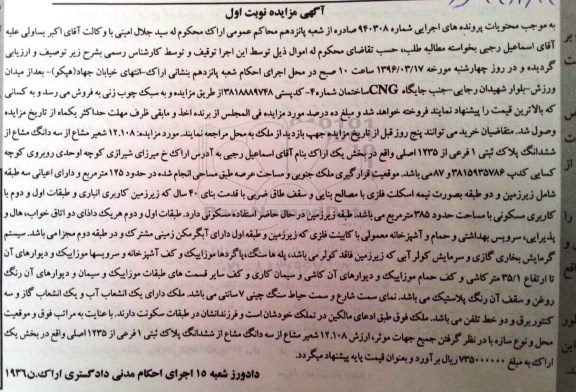 آگهی مزایده نوبت اول
به موجب محتویات پرونده های اجرایی شماره ۹۴۰۳۰۸ صادره از شعبه پانزدهم محاکم عمومی اراک محکوم له سید جلال امینی با وکالت آقای اکبر یساولی علیه
آقای اسماعیل رجبی بخواسته مطالبه طلب، حسب تقاضای محکوم له اموال ذیل توسط این اجرا توقیف و توسط کارشناس رسمی بشرح زیر توصیف و ارزیابی
گردیده و در روز چهارشنبه مورخه ۱۳۹۶/۰۳/۱۷ ساعت ۱۰ صبح در محل اجرای احکام شعبه پانزدهم بنشانی اراک-انتهای خیابان جهاد(هپکو)- بعداز میدان
ورزش-بلوار شهیدان رجایی-جنب جایگاه CNGساختمان شماره۴- کدپستی ۳۸۱۸۸۸۹۷۴۸از طریق مزایده و به سبک چوب زنی به فروش می رسد و به کسانی
که بالاترین قیمت را پیشنهاد نمایند فروخته خواهد شد و مبلغ ده درصد مورد مزایده فی المجلس از برنده اخذ و مابقی ظرف مهلت حداکثر یکماه از تاریخ مزایده
وصول شد. متقاضیان خرید می توانند پنج روز قبل از تاریخ مزایده جهت بازدید از ملک به محل مراجعه نمایند. مورد مزایده: ۱۲.۱۰۸ شعیر مشاع از سه دانگ مشاع از
ششدانگ پلاک ثبتی ۱ فرعی از ۱۲۳۵ اصلی واقع در بخش یک اراک بنام آقای اسماعیل رجبی به آدرس اراک خ میرزای شیرازی کوچه اوحدی روبروی کوچه
کسایی کدپ ۳۸۱۵۹۳۵۷۸۶ و ۸۷می باشد. موقعیت قرارگیری ملک جنوبی و مساحت عرصه طبق مساحی انجام شده در حدود ۱۲۵ مترمربع و دارای اعیانی سه طبقه
شامل زیرزمین و دو طبقه بصورت نیمه اسکلت فلزی با مصالح بنایی و سقف طاق ضربی با قدمت بنای ۴۰ سال که زیرزمین کاربری انباری و طبقات اول و دوم با
کاربری مسکونی با مساحت حدود ۳۸۵ مترمربع می باشد. طبقه زیرزمین در حال حاضر استفاده مسکونی دارد. طبقات اول و دوم هریک داذای دو اتاق خواب، هال و
پذیرایی، سرویس بهداشتی و حمام و آشپزخانه معمولی با کابینت فلزی که زیرزمین و طبقه اول دارای آبگرمکن زمینی مشترک و در طبقه دوم مجزا می باشد. سیستم
گرمایش بخاری گازی و سرمایش کولر آبی که زیرزمین فاقد کولر می باشد، پله ها سنگ، پاگردها موزاییک و کف آشپزخانه و سرویسها موزاییک و دیوارهای آن
تا ارتفاع ۳۵/۱ متر کاشی و کف حمام موزاییک و دیوارهای آن کاشی و سیمان کاری و کف سایر قسمت های طبقات موزاییک و سیمان و دیوارهای آن رنگ
روغن و سقف آن رنگ پلاستیک می باشد. نمای سمت شارع و سمت حیاط سنگ چینی ۷ سانتی می باشد. ملک دارای یک انشعاب آب و یک انشعاب گاز و سه
کنتور برق و دو خط تلفن می باشد. ملک فوق طبق ادعای مالکین در تملک خودشان است و فرزندانشان در طبقات سکونت دارند. با عنایت به مراتب فوق و موقعیت
محل و نوع سازه با در نظر گرفتن جمیع جهات موثر، ارزش ۱۲.۱۰۸ شعیر مشاع از سه دانگ مشاع از ششدانگ پلاک ثبتی ۱ فرعی از ۱۲۳۵ اصلی واقع در بخش یک
اراک به مبلغ ۷۳۵۰۰۰۰۰۰ ریال برآورد و بعنوان قیمت پایه پیشنهاد میگردد.
دادورز شعبه ۱۵ اجرای احکام مدنی دادگستری اراک.ن۱۹۳۶